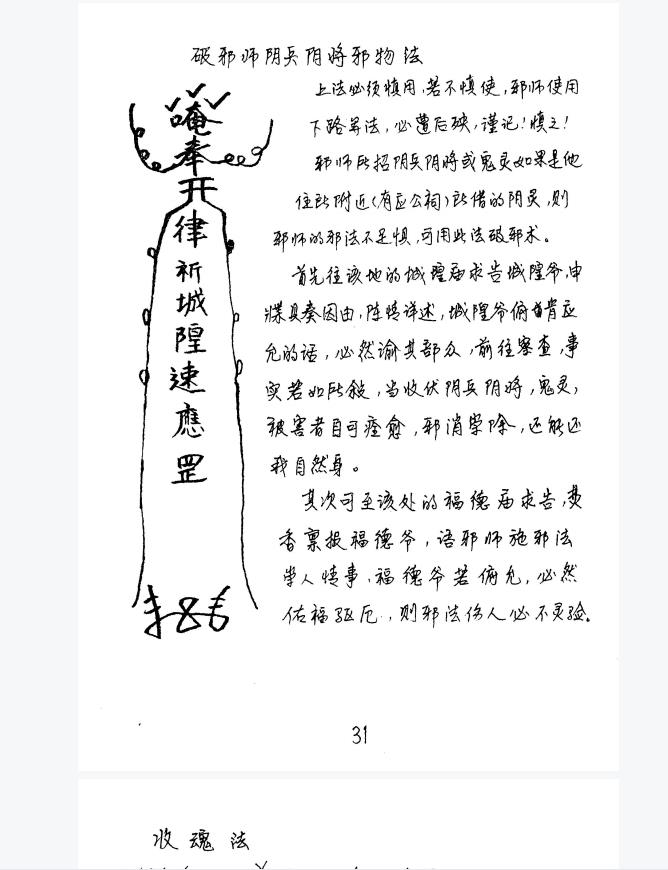 破邪师阴兵阴将邪物法
唵
奉
开
律
祈
城
隍
速
應
罡
上法必须慎用,若不慎使,邪师使用
下路算法,必遭后殃,谨记!慎之!
邪师所招阴兵阴将或鬼灵如果是他
住所附近(有应公祠)所借的阴灵,则
邪师的邪法不足惧,可用此法破邪术。
首先往该地的城隍庙求告城隍爷,申
牒具奏因由,陈情详述,城隍爷俯肯应
允的话,必然谕其部众,前往审查,事
实若如所叙,当收伏阴兵阴将,鬼灵,
被害者自可痊愈,邪消孽除,还能还
我自然身。
其次可至该处的福德庙求告,焚
香禀报福德爷,语邪师施邪法
人情事,福德爷若俯允,必然
佑福驱厄,则邪法伤人必不灵验。
31
收魂法